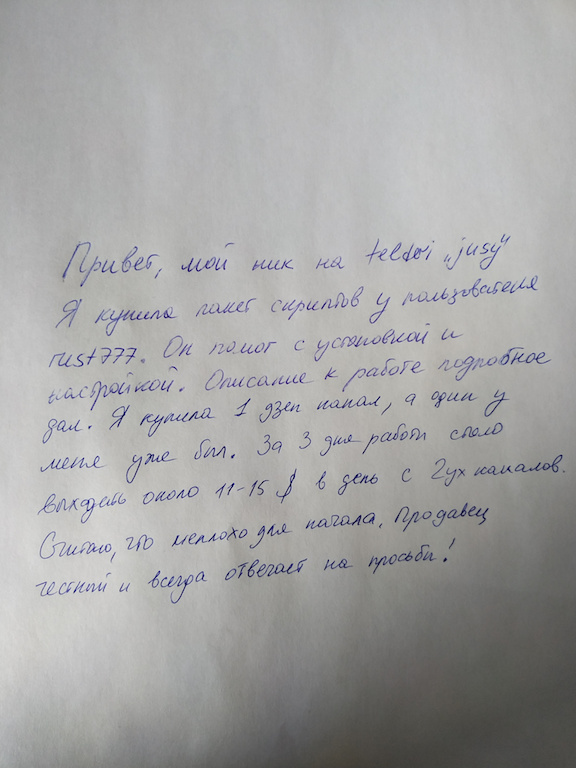 Привет, мой ник на teldri „jusy"
Я купила пакет скриптов у пользователя
rust777. Он помог с установкой и
настройкой. Описание к работе подробное
дал. Я купила 1 дзен канал, а один у
меня уже был. За 3 дня работы стало
выходить около 11-15 $ в день с 2ух каналов.
Считаю, что неплохо для начала. Продавец
честный и всегда отвечает на просьбы!